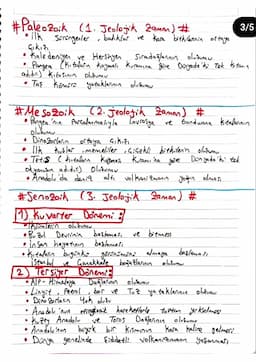 3/5
# Paleozoik (1. Jeolojik Zaman) #
• İlk sürüngenler, balıklar ve kara bitkilerinin ortaya
çıkışı
• Kaledoniyen ve Hersiniyen Sıradağlarının oluşumu
• Pangea (Kıtaların Kayması Kuramına göre Dünya'daki tek kıtanın
adıdır) Kıtasının oluşumu
• Taş kömürü yataklarının oluşumu
# Mesozoik (2. Jeolojik Zaman) #
• Pangea'nın Parçalanmasıyla Lavrasya ve Gondwana kıtalarının
oluşumu
• Dinozorların ortaya çıkışı
• İlk kuşlar, memeliler, çiçekli bitkilerin oluşumu
• Tetis (Kıtaların Kayması Kuramına göre Dünya'daki tek
okyanusun adıdır) Oluşumu
• Anadolu'da deniz altı volkanizmanın yoğun olması
# Senozoik (3. Jeolojik Zaman) #
1) Kuvarter Dönemi:
• İklimlerin oluşumu
• Buzul Devrinin başlaması ve bitmesi
• İnsan hayatının başlaması
• Kıtaların bugünkü görünümünü almaya başlaması
• İstanbul ve Çanakkale boğazlarının oluşumu
2) Tersiyer Dönemi:
• Alp-Himalaya Dağlarının oluşumu
• Linyit, Petrol, bor ve Tuz yataklarının oluşumu
• Dinozorların yok oluşu
• Anadolu'nun hareketlerle Toptan yükselmesi
• Kuzey Anadolu ve Toros Dağlarının oluşumu
• Anadolu'nun büyük bir kısmının kara haline gelmesi
• Dünya genelinde şiddetli volkanizmanın yaşanması